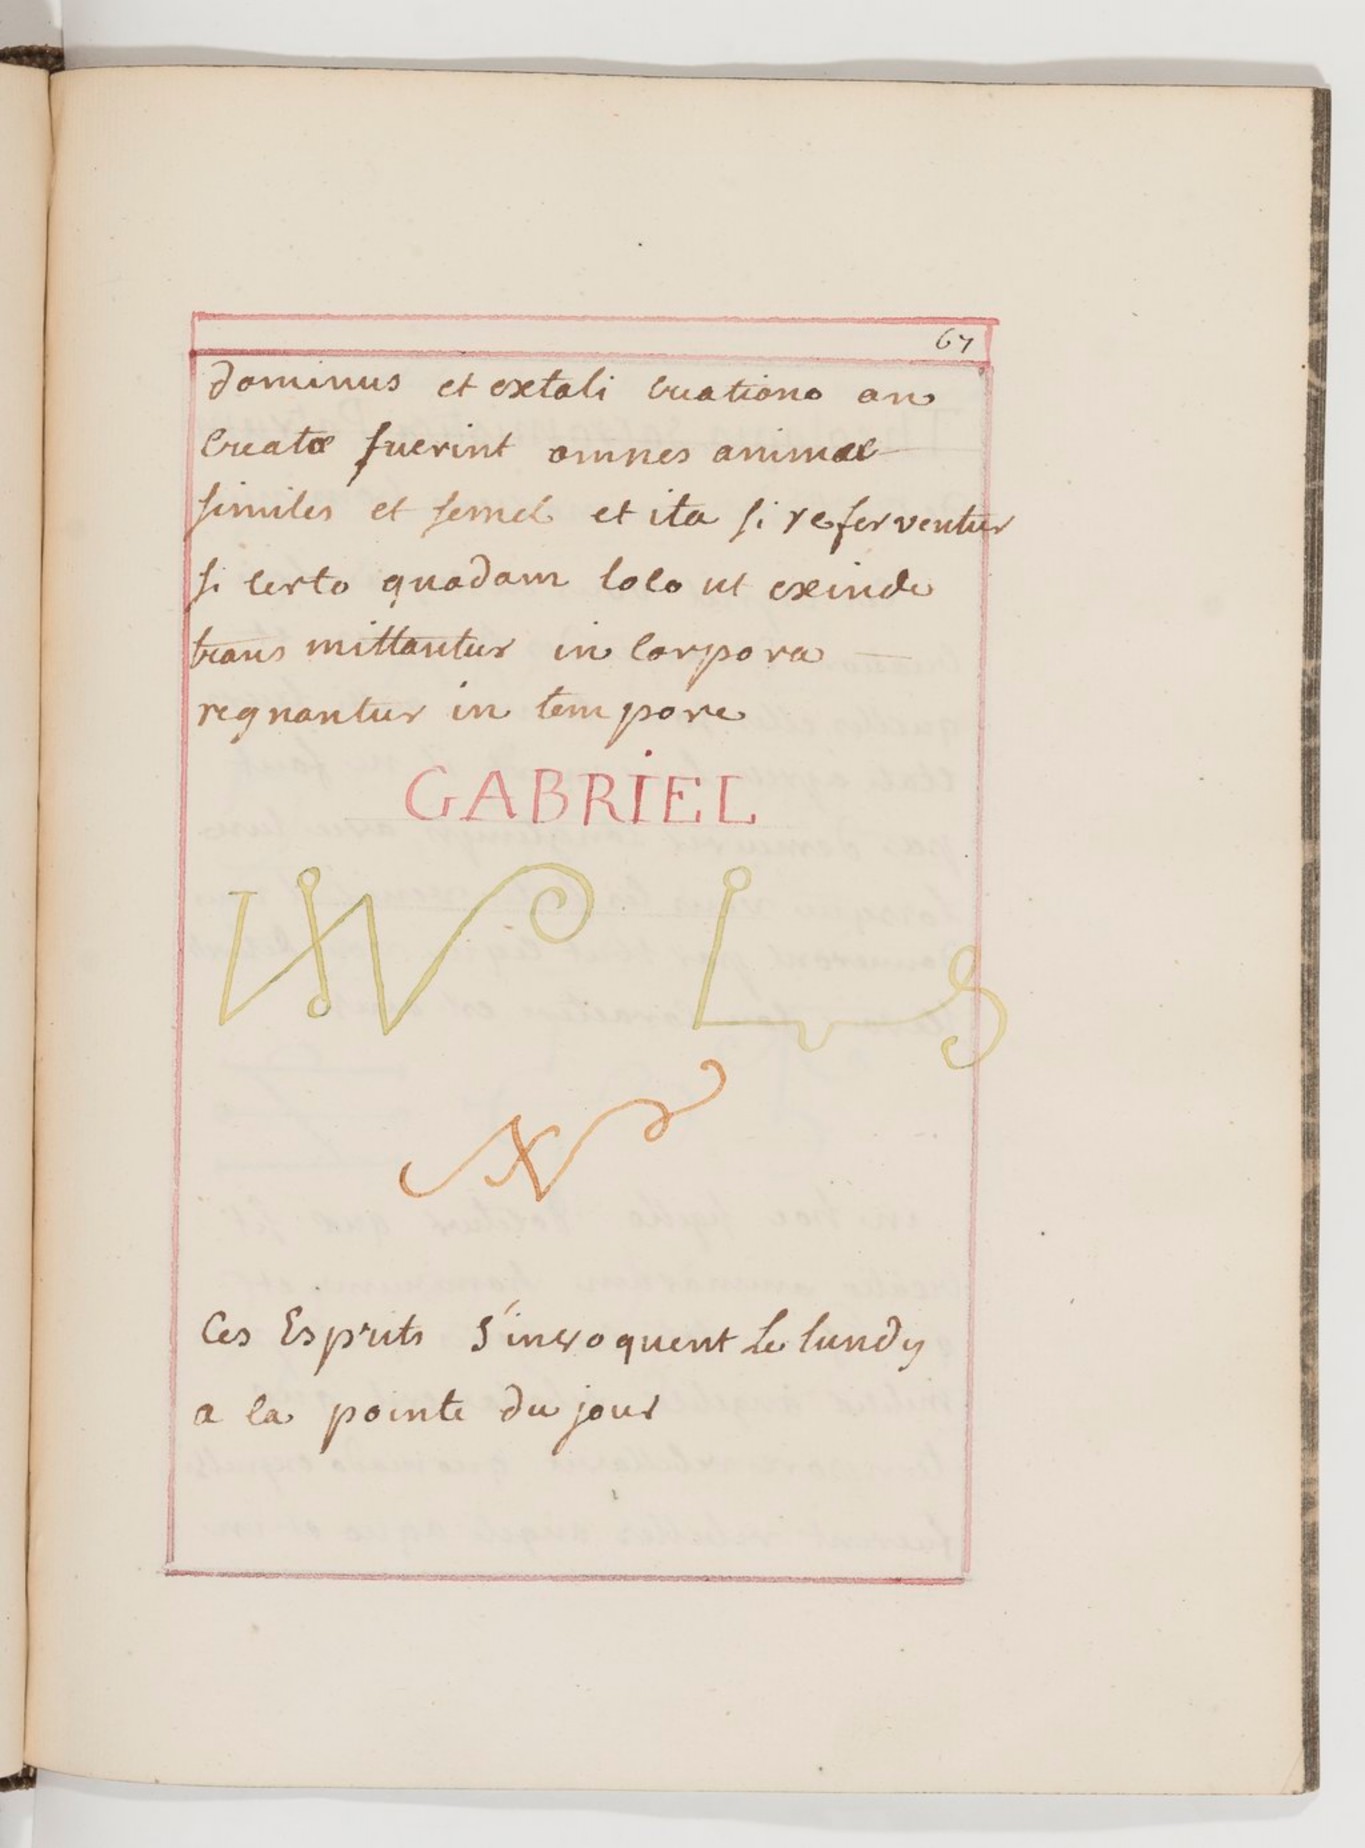 67
dominus et extali creatione an
creatæ fuerint omnes animæ
similes et semel et ita si referventur
si certo quadam loco ut exinde
trans mittantur in corpora
regnantur in tempore
GABRIEL
Ces Esprits S'invoquent Le lundy
a la pointe du jour